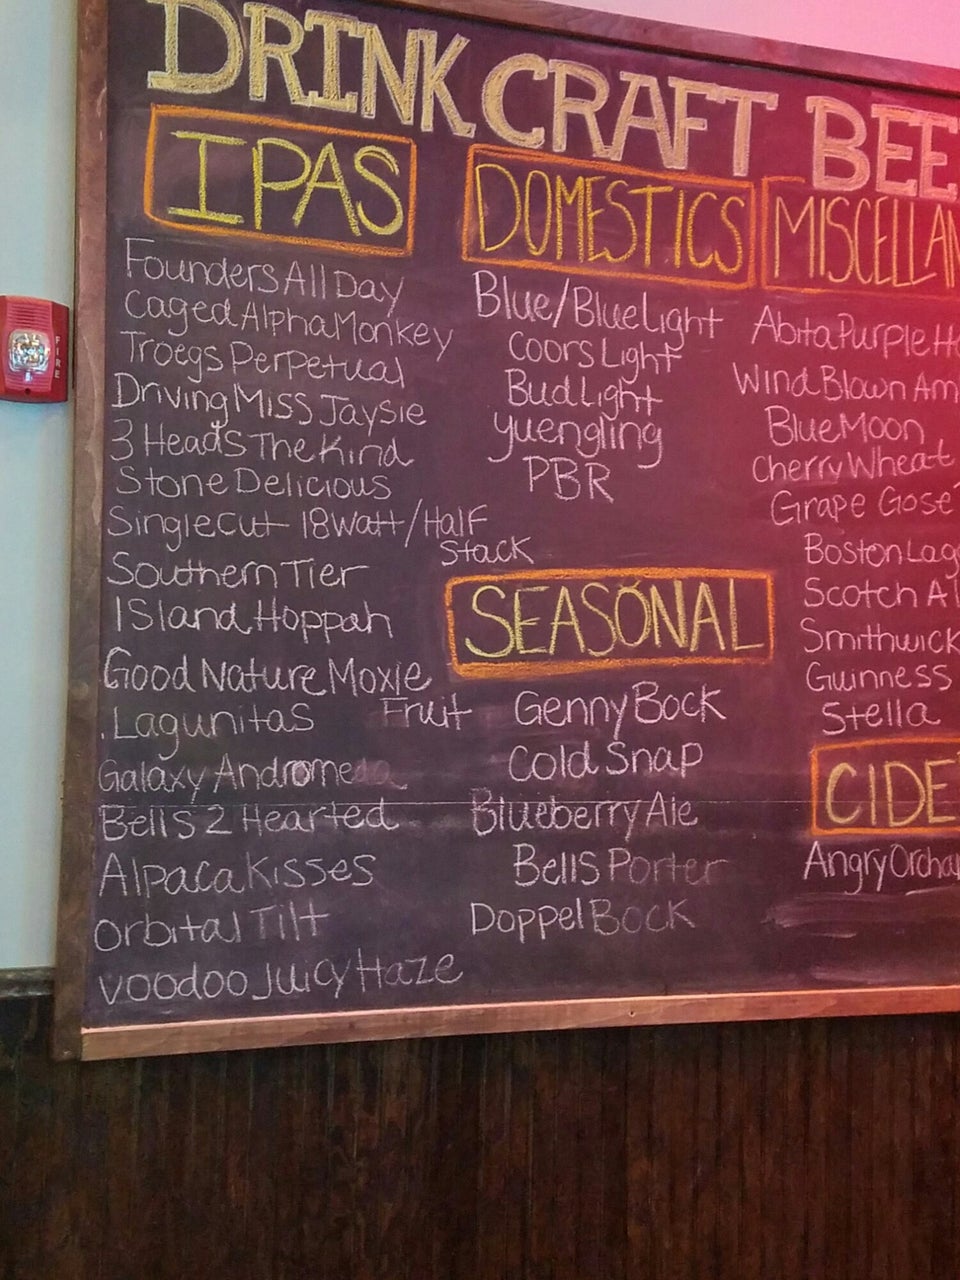 DRINK CRAFT BEE
IPAS
Founders All Day
Caged Alpha Monkey
Troegs Perpetual
Driving Miss Jaysie
3 Heads The Kind
Stone Delicious
Singlecut 18 Watt/Half
Stack
Southern Tier
Island Hoppah
Good Nature Moxie
Lagunitas Fruit
Galaxy Andromeda
Bells 2 Hearted
Alpaca Kisses
Orbital Tilt
Voodoo Juicy Haze
DOMESTICS
Blue/Blue Light
Coors Light
Bud Light
yuengling
PBR
SEASONAL
Genny Bock
Cold Snap
Blueberry Ale
Bells Porter
Doppel Bock
MISCELLAN
Abita Purple Ha
Wind Blown Am
Blue Moon
Cherry Wheat
Grape Gose
Boston Lag
Scotch Al
Smithwick
Guinness
Stella
CIDE
Angry Orcha
FIRE